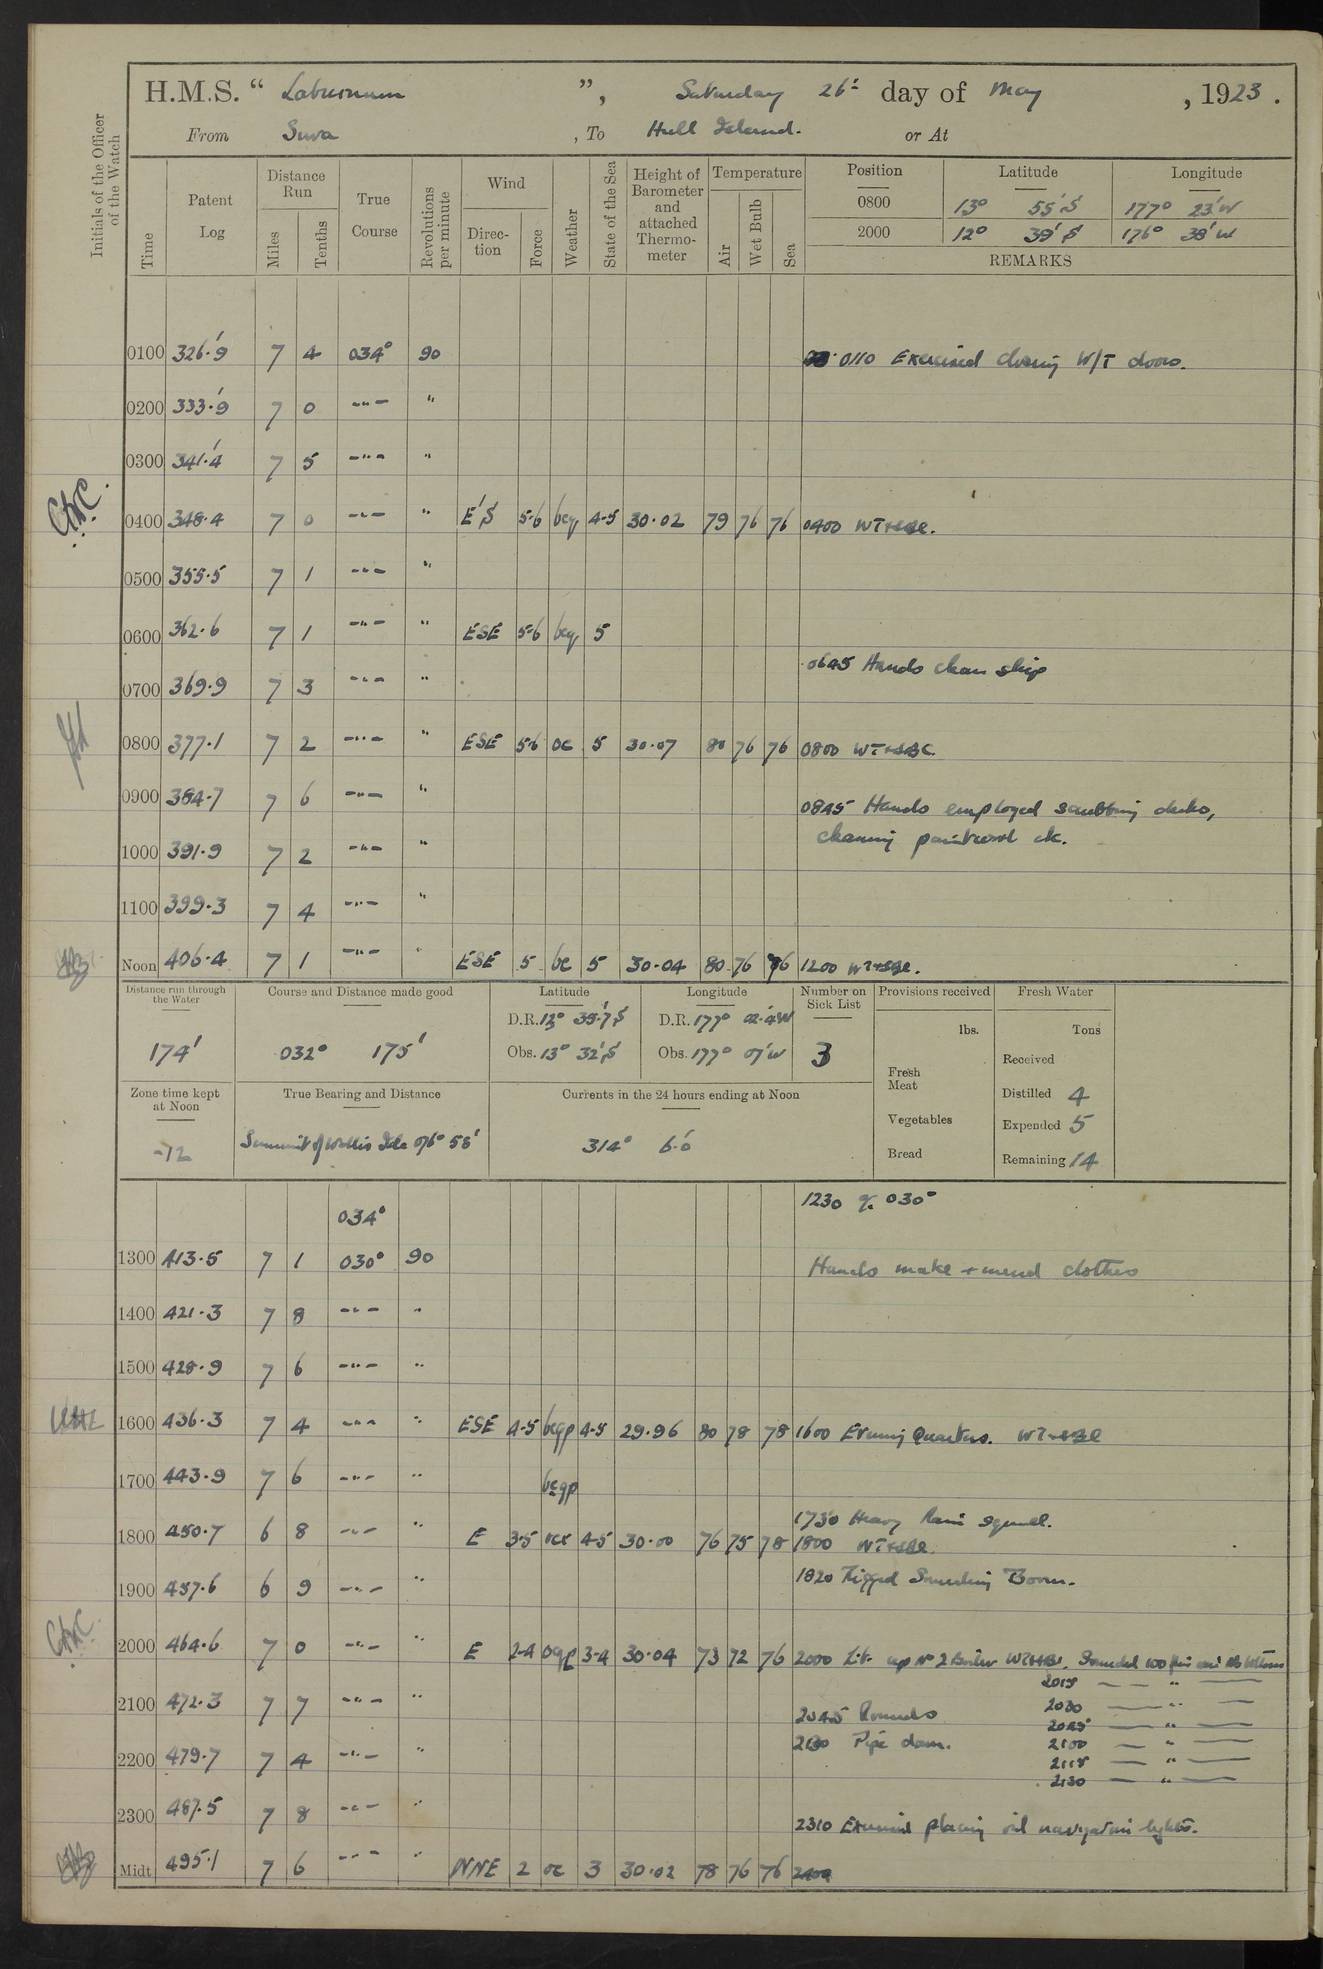 H.M.S. “ Laburnum ”, Saturday 26th day of May , 1923 .
From Suva , To Hull Island. or At
Initials of the Officer of the Watch
Time
Patent Log
Distance Run
Miles
Tenths
True Course
Revolutions per minute
Wind
Direc- tion
Force
Weather
State of the Sea
Height of Barometer and attached Thermo- meter
Temperature
Air
Wet Bulb
Sea
Position Latitude Longitude
0800 13° 55'S 177° 23'W
2000 12° 39'S 176° 38'W
REMARKS
0100 326.9 7 4 034° 90 0110 Exercised closing W/T doors.
0200 333.9 7 0 -"- "
0300 341.4 7 5 -"- "
0400 348.4 7 0 -"- " E'S 5-6 bcq 4-5 30.02 79 76 76 0400
0500 355.5 7 1 -"- "
0600 362.6 7 1 -"- " ESE 5-6 bcq 5
0645 Hands clean ship
0700 369.9 7 3 -"- "
0800 377.1 7 2 -"- " ESE 5-6 oc 5 30.07 80 76 76 0800
0900 384.7 7 6 -"- " 0845 Hands employed scrubbing decks,
cleaning paintwork etc.
1000 391.9 7 2 -"- "
1100 399.3 7 4 -"- "
Noon 406.4 7 1 -"- " ESE 5 bc 5 30.04 80 76 76 1200
Distance run through the Water
174'
Course and Distance made good
032° 175'
Latitude
D.R. 13° 39.7'S
Obs. 13° 32'S
Longitude
D.R. 177° 02.4'W
Obs. 177° 07'W
Number on Sick List
3
Provisions received
lbs.
Fresh Meat
Vegetables
Bread
Fresh Water
Tons
Received
Distilled 4
Expended 5
Remaining 14
Zone time kept at Noon
-12
True Bearing and Distance
Summit of Wallis Isle 076° 58'
Currents in the 24 hours ending at Noon
314° 6.0'
034° 1230 030°
1300 413.5 7 1 030° 90 Hands make + mend clothes
1400 421.3 7 8 -"- "
1500 428.9 7 6 -"- "
1600 436.3 7 4 -"- " ESE 4-5 bcqp 4-5 29.96 80 78 78 1600 Evening Quarters.
1700 443.9 7 6 -"- " bcqp
1730 Heavy Rain squall.
1800 450.7 6 8 -"- " E 3-5 4-5 30.00 76 75 78 1800
1820 Rigged Sounding Boom.
1900 457.6 6 9 -"- "
2000 464.6 7 0 -"- " E 2-4 oqp 3-4 30.04 73 72 76 2000 Lit up No 2 Boiler Sounded 100 no bottom
2015 — " —
2030 — " —
2100 472.3 7 7 -"- " 2045 Rounds 2045 — " —
2100 Pipe down. 2100 — " —
2200 479.7 7 4 -"- " 2115 — " —
2130 — " —
2300 487.5 7 8 -"- "
2310 placing oil navigation lights.
Midt 495.1 7 6 -"- " NNE 2 oc 3 30.02 78 76 76